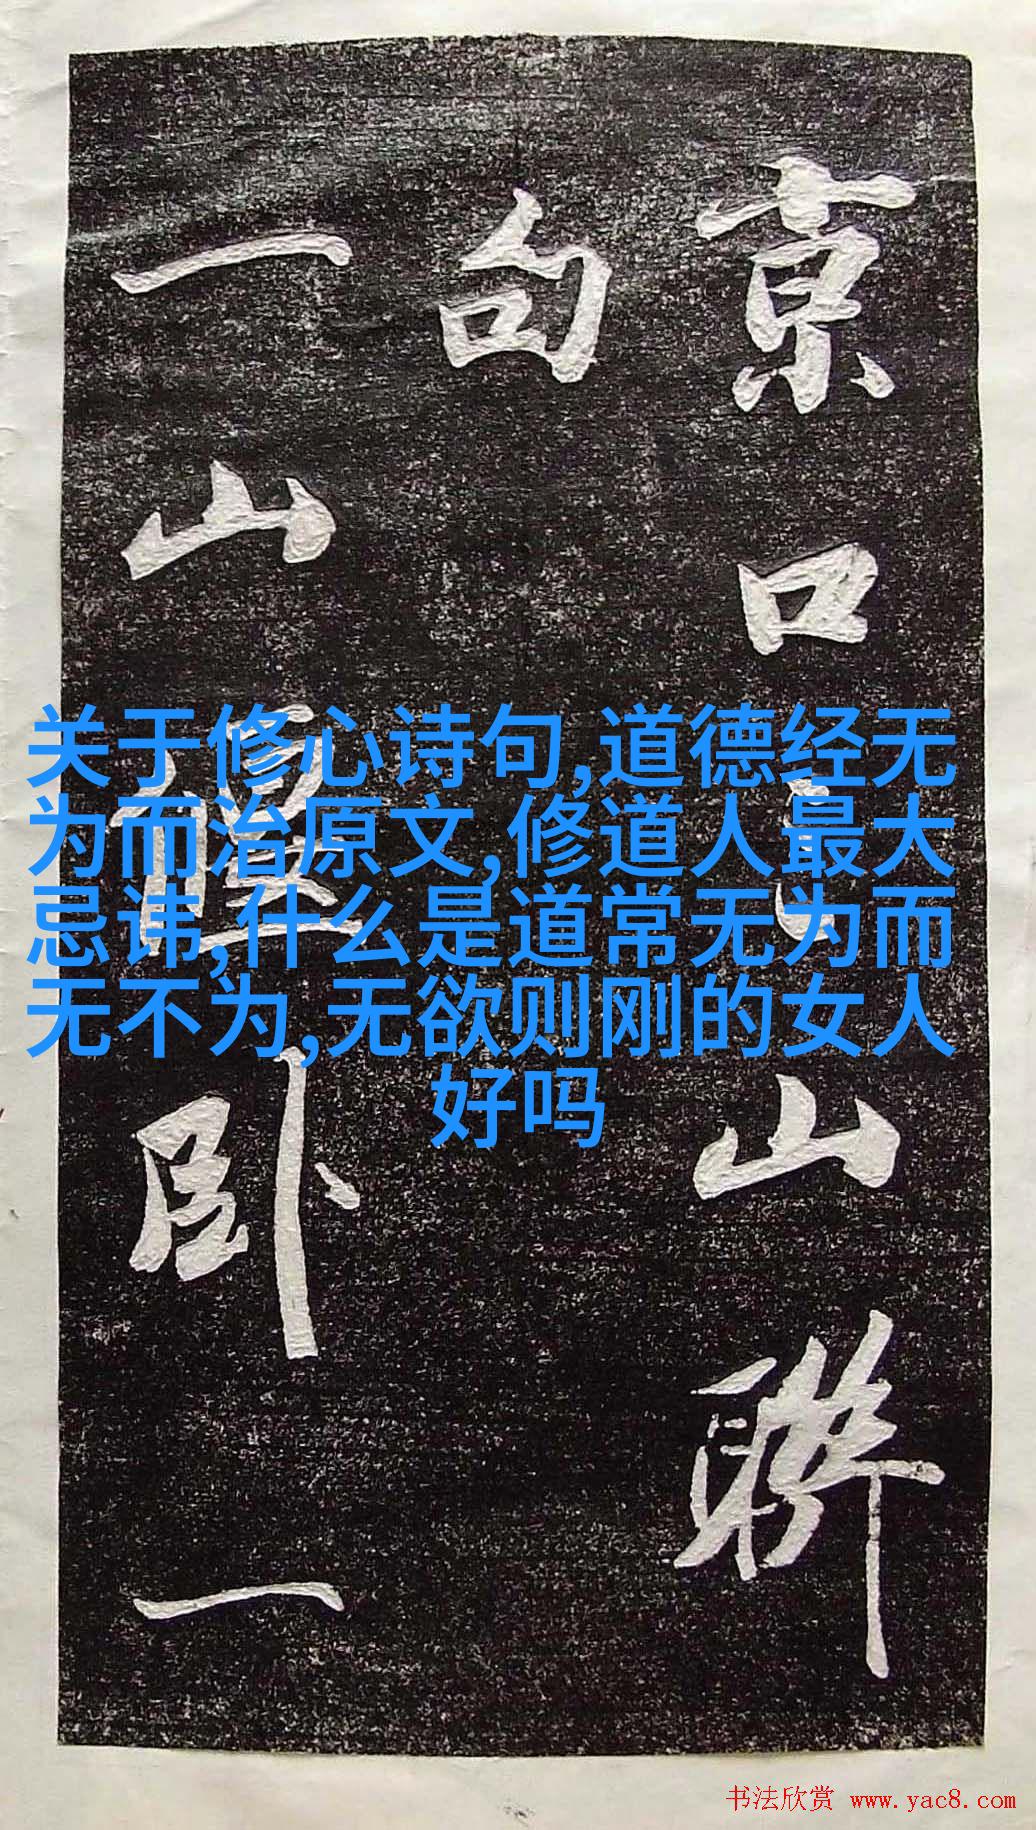 京口山聯
句
一山臥一
关于修心诗句,道德经无
为而治原文,修道人最大
忌讳,什么是道常无为而
无不为,无欲则刚的女人
好吗
书法欣赏 www.yac8.com